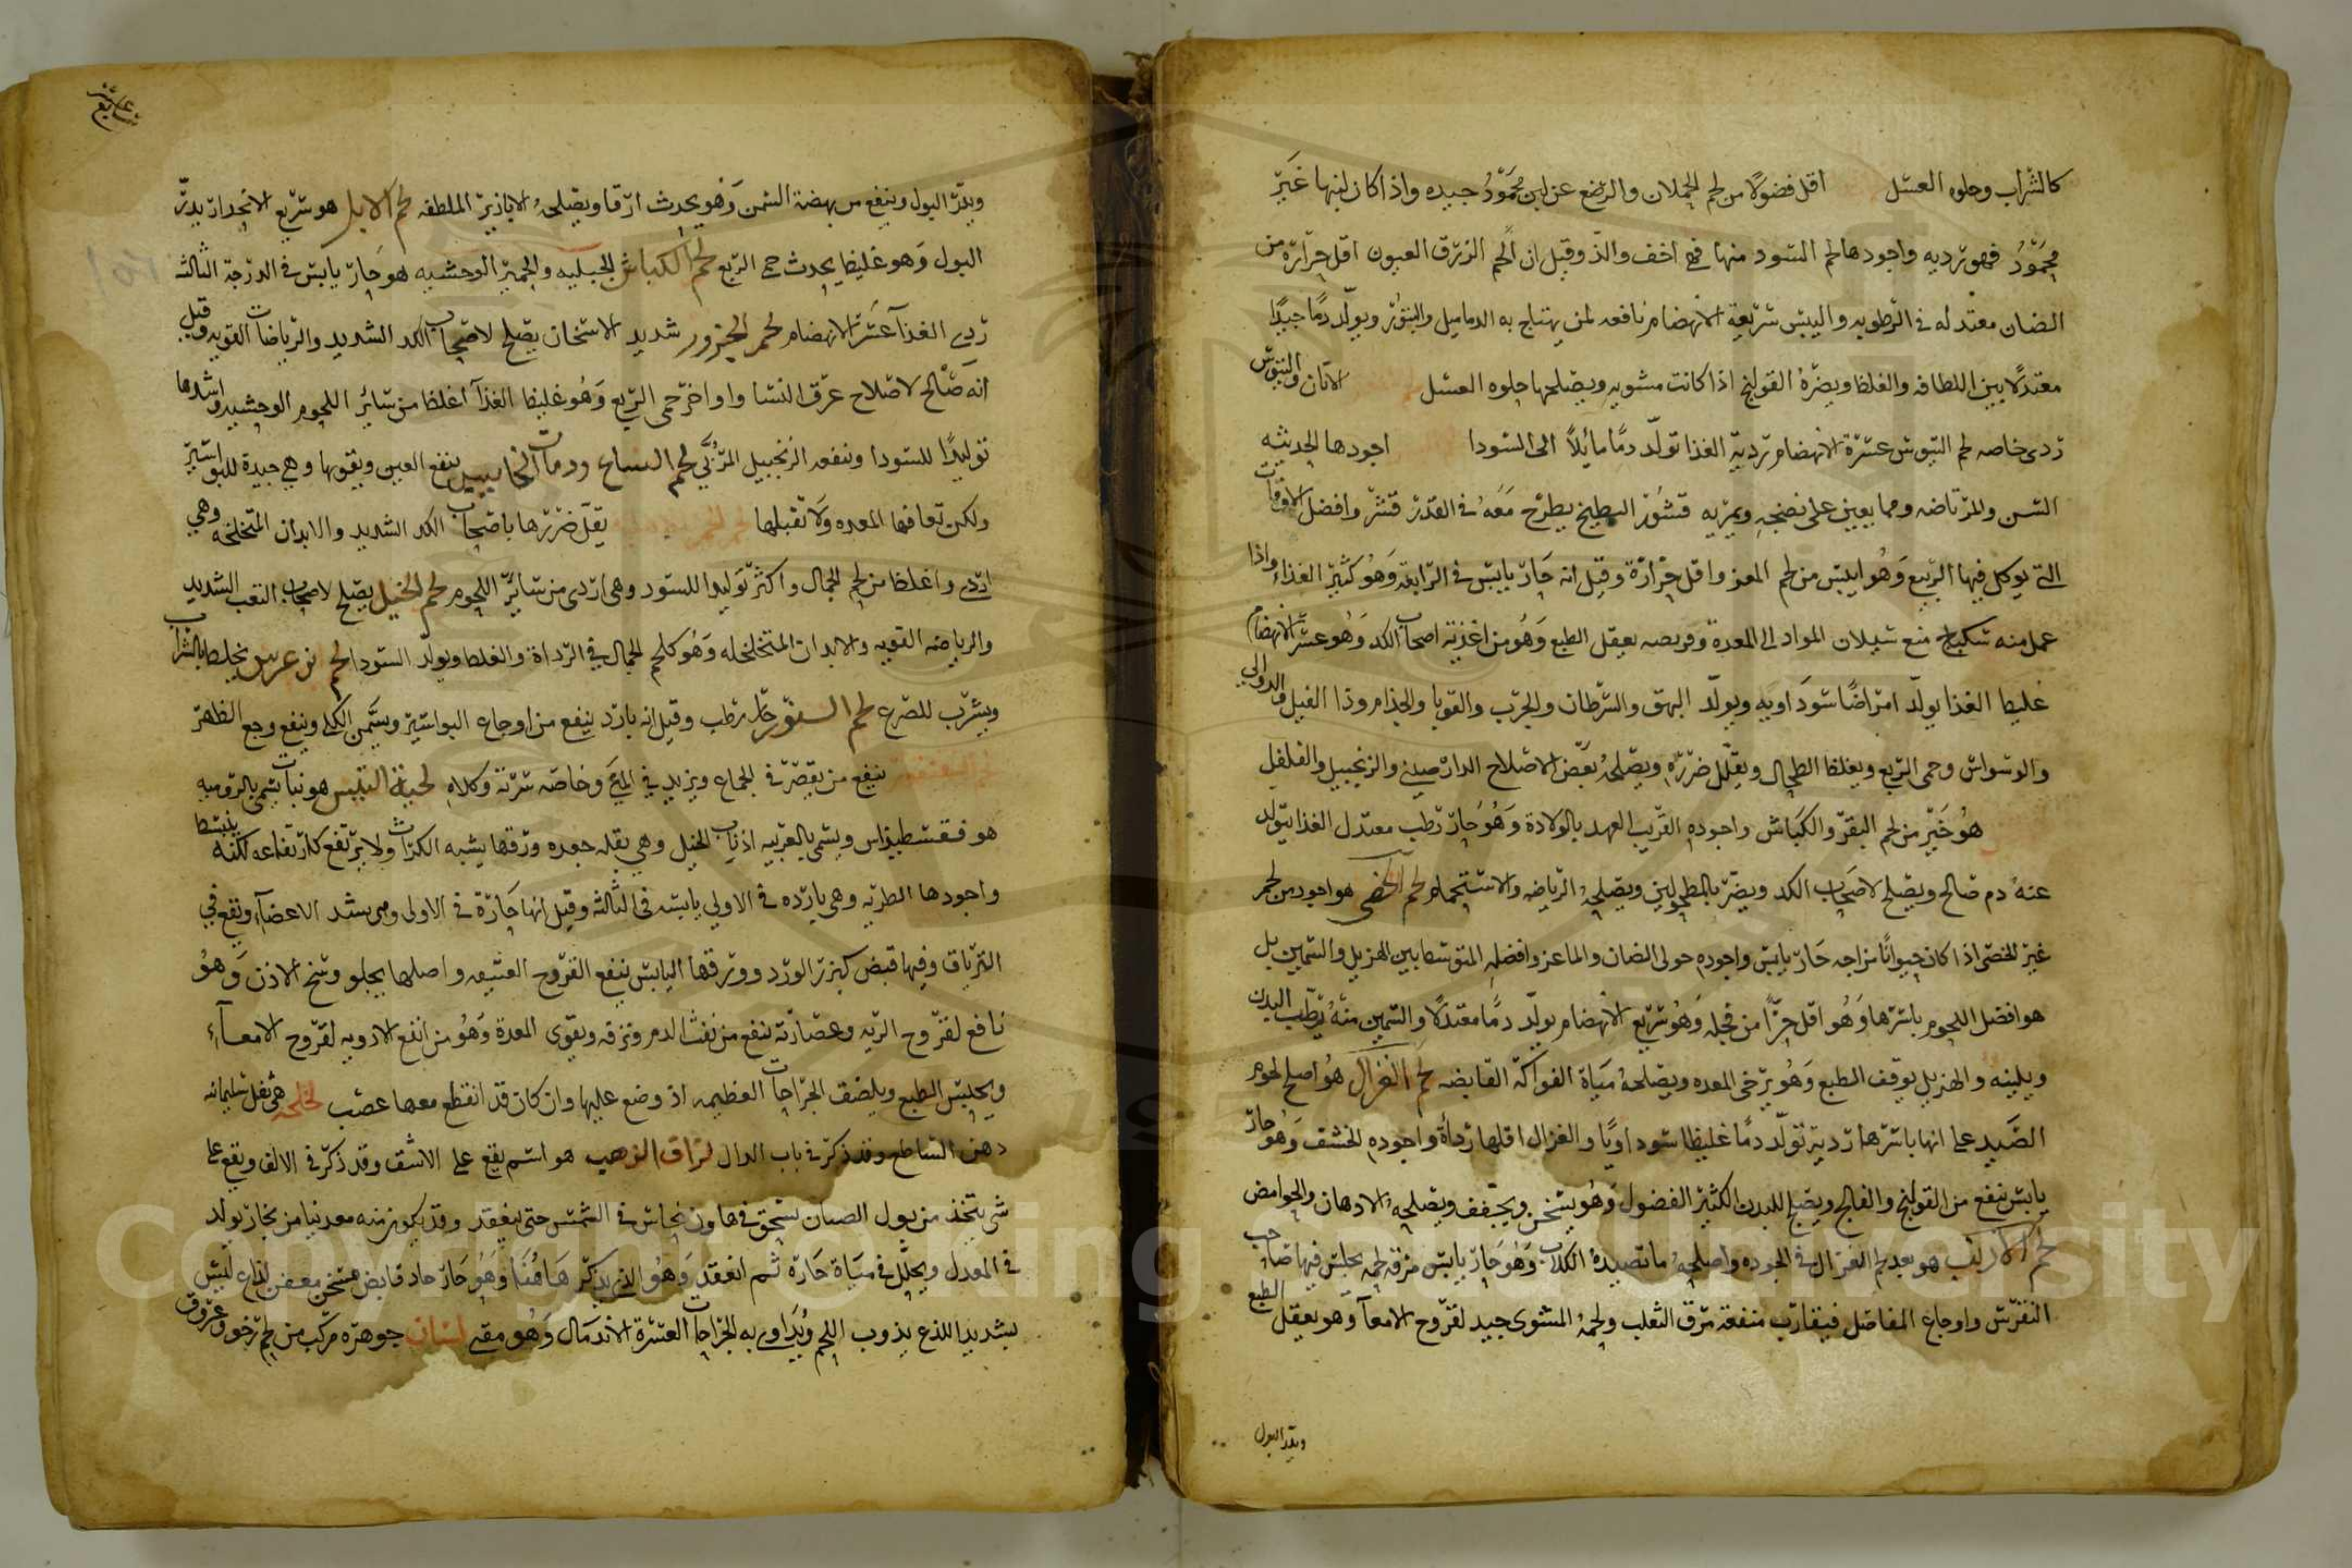 كالشراب وحلوه العسل اقل فضولا من لحم الحملان والرضع عن لبن محمود جيده واذا كان لبنها غير
محمود فهو رديه واجودها لحم السود منها فهي اخف والذ وقيل ان لحم الزرق العيون اقل حرارة من
الضان معتدله في الرطوبه واليبس سريعة الانهضام نافعه لمن يهتاج به الدماميل والبثور ويولد دما جيدا
معتدلا بين اللطافه والغلظ ويضره القولنج اذا كانت مشويه ويصلحها حلوه العسل الاتان والتيوس
ردى خاصه لحم التيوس عسرة الانهضام رديه الغذا تولد دما مائلا الى السودا اجودها الحديثه
السن والمرتاضه ومما يعين على نضجه ويمريه قشور البطيخ يطرح معه في القدر قشر وافضل الاوقات
التي يوكل فيها الربيع وهو ايبس من لحم المعز واقل حرارة وقيل انه حار يابس في الرابعة وهو كثير الغذاء واذا
عمل منه سكباج منع سيلان المواد الى المعدة وقريصه يعقل الطبع وهو من اغذية اصحاب الكد وهو عسر الانهضام
غليظ الغذا يولد امراضا سوداويه ويولد البهق والسرطان والجرب والقوبا والجذام وذا الفيل والدوالي
والوسواس وحمى الربع ويغلظ الطحال ويقلل ضرره ويصلحه بعض الاصلاح الدارصيني والزنجبيل والفلفل
هو خير من لحم البقر والكباش واجوده القريب العهد بالولادة وهو حار رطب معتدل الغذا يتولد
عنه دم صالح ويصلح لاصحاب الكد ويضر بالمطحولين ويصلحه الرياضه والاستحمام لحم الخصى هو اجود من لحم
غير الخصى اذا كان حيوانا مزاجه حار يابس واجوده حولى الضان والماعز وافضله المتوسط بين الهزيل والسمين بل
هو افضل اللحوم باسرها وهو اقل حرا من فحله وهو سريع الانهضام يولد دما معتدلا والسمين منه يرطب البدن
ويلينه والهزيل يوقف الطبع وهو يرخى المعده ويصلحه مياة الفواكه القابضه لحم الغزال هو اصلح لحوم
الصيد على انها باسرها رديه تولد دما غليظا سوداويا والغزال اقلها رداة واجوده الخشف وهو حار
يابس ينفع من القولنج والفالج ويصلح للبدن الكثير الفضول وهو يسخن ويجفف ويصلحه الادهان والحوامض
لحم الارنب هو بعد لحم الغزال في الجوده واصلحه ما تصيده الكلاب وهو حار يابس مرقة لحمه يجلس فيها صاحب
النقرس واوجاع المفاصل فيقارب منفعة مرق الثعلب ولحمه المشوى جيد لقروح الامعا وهو يعقل الطبع
ويدر البول
ويدر البول وينفع من بهضة السمن وهو يحدث ارقا ويصلحه الابازير الملطفه لحم الابل هو سريع الانحدار يدر
البول وهو غليظ يحدث حمى الربع لحم الكباش الجبليه والحمير الوحشيه هو حار يابس في الدرجة الثالثه
ردى الغذا عسر الانهضام لحم الجزور شديد الاسخان يصلح لاصحاب الكد الشديد والرياضات القويه وقيل
انه صالح لاصلاح عرق النسا واواخر حمى الربع وهو غليظ الغذا اغلظ من سائر اللحوم الوحشيه واشدها
توليدا للسودا وينفعه الزنجبيل المربى لحم السباع وذوات المخاليب ينفع العين ويقويها وهي جيدة للبواسير
ولكن تعافها المعده ولا تقبلها يقل ضررها باصحاب الكد الشديد والابدان المتخلخله وهي
اردى واغلظ من لحم الجمال واكثر توليدا للسود وهى اردى من سائر اللحوم لحم الخيل يصلح لاصحاب التعب الشديد
والرياضه القويه والابدان المتخلخله وهو كلحم الجمال في الرداة والغلظ ويولد السودا لحم بن عرس يخلط بالشراب
ويشرب للصرع لحم السنور حار رطب وقيل انه بارد ينفع من اوجاع البواسير ويسخن الكلى وينفع وجع الظهر
ينفع من يقصر في الجماع ويزيد في المنى وخاصه سرته وكلاه لحية التيس هو نبات يسمى بالروميه
هو فسطيداس ويسمى بالعربيه اذناب الخيل وهي بقله جعده ورقها يشبه الكراث ولا يرتفع كارتفاعه لكنه ينبسط
واجودها الطريه وهى بارده في الاولى يابسه في الثالثه وقيل انها حارة في الاولى وهى يشد الاعضاء ويقع في
الترياق وفيها قبض كبزر الورد وورقها اليابس ينفع القروح العتيقه واصلها يجلو وسخ الاذن وهو
نافع لقروح الريه وعصارته تنفع من نفث الدم ونزفه ويقوى المعدة وهو من انفع الادويه لقروح الامعاء
ويحبس الطبع ويلصق الجراحات العظيمه اذ وضع عليها وان كان قد انقطع معها عصب لخلخه هى ثفل سليمانه
دهن الساطع وقد ذكر في باب الدال لزاق الذهب هو اسم يقع على الاشق وقد ذكر في الالف ويقع على
شى يتخذ من بول الصبيان يسحق في هاون نحاس في الشمس حتى ينعقد وقد يكون منه معدنيا من بخار يولد
في المعدل ويحلل في مياة حارة ثم انعقد وهو الذى يذكر هاهنا وهو حار حاد قابض مسخن معفن لذاع ليس
بشديد اللذع يذوب اللحم ويداوى به الجراحات العسرة الاندمال وهو مقيء لسان جوهره مركب من لحم رخو وعروق